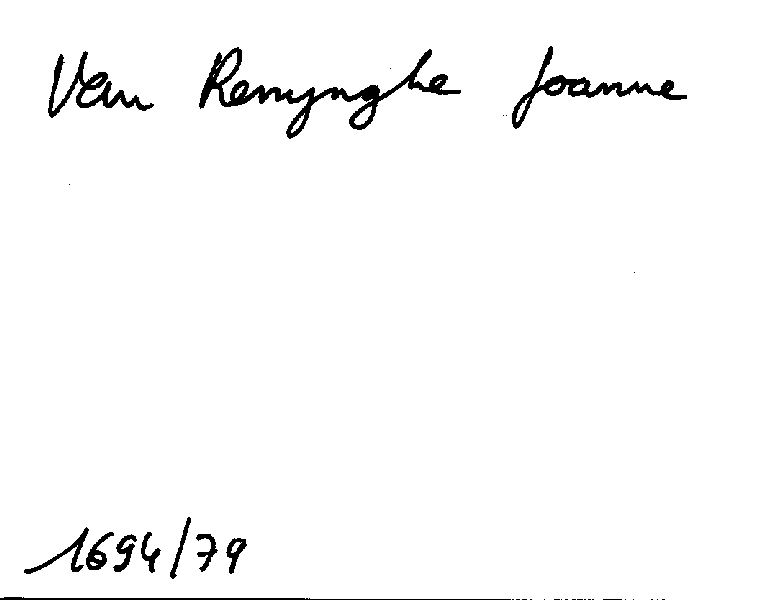 Van Renynghe Joanne
1694/79